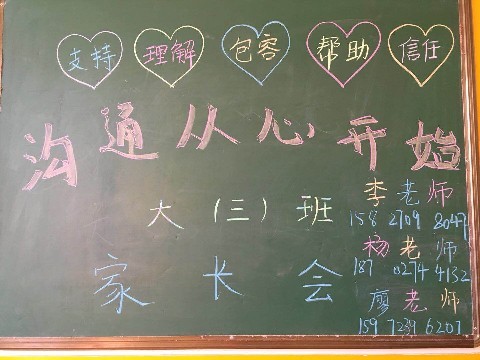 支持 理解 包容 帮助 信任
沟通从心开始
大（三）班
家长会
李老师
158 2709 8047
杨老师
187 0274 4132
廖老师
159 7239 6207